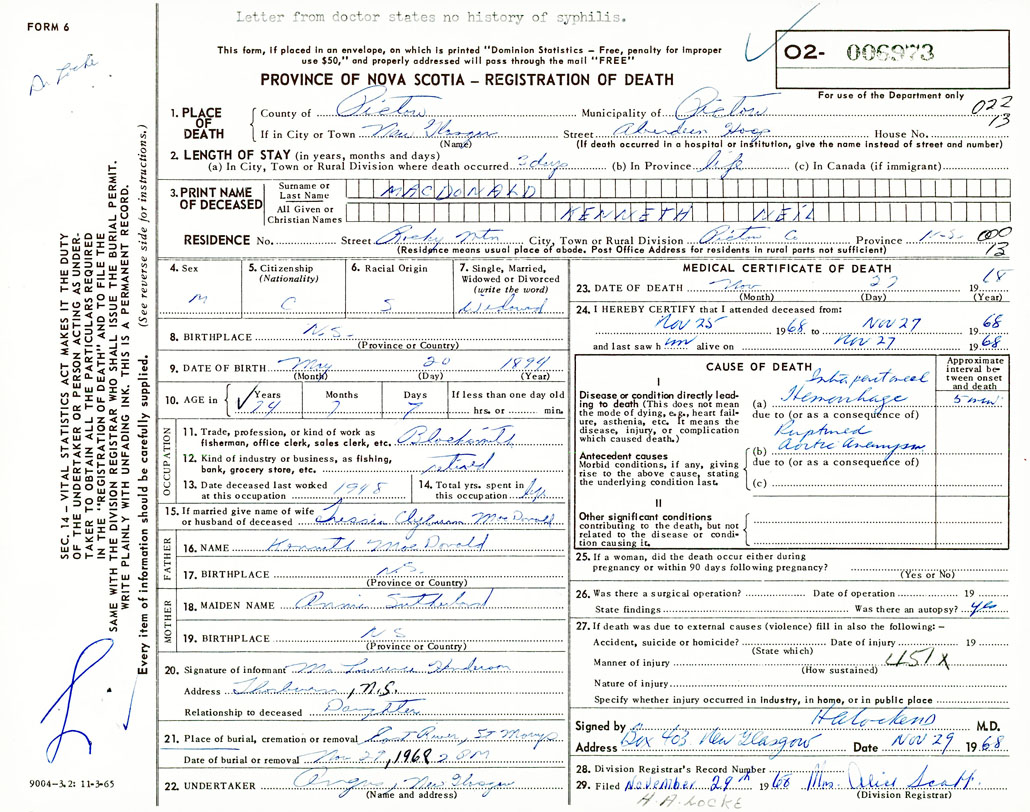 Letter from doctor states no history of syphilis.
FORM 6
This form, if placed in an envelope, on which is printed "Dominion Statistics – Free, penalty for improper
use $50," and properly addressed will pass through the mail "FREE"
PROVINCE OF NOVA SCOTIA – REGISTRATION OF DEATH
O2- 006973
For use of the Department only
022
13
1. PLACE OF DEATH
County of Pictou Municipality of Pictou
If in City or Town New Glasgow Street Aberdeen Hosp House No.
(Name) (If death occurred in a hospital or institution, give the name instead of street and number)
2. LENGTH OF STAY (in years, months and days)
(a) In City, Town or Rural Division where death occurred 3 days (b) In Province life (c) In Canada (if immigrant)
3. PRINT NAME OF DECEASED
Surname or Last Name MACDONALD
All Given or Christian Names KENNETH NEIL
RESIDENCE No. Street Rocky Mtn City, Town or Rural Division Pictou C Province N.S. 000
(Residence means usual place of abode. Post Office Address for residents in rural parts not sufficient) 13
4. Sex M
5. Citizenship (Nationality) C
6. Racial Origin S
7. Single, Married, Widowed or Divorced (write the word) Widowed
8. BIRTHPLACE N.S.
(Province or County)
9. DATE OF BIRTH May 20 1894
(Month) (Day) (Year)
10. AGE in Years 74 Months 7 Days 7 If less than one day old hrs. or min.
OCCUPATION
11. Trade, profession, or kind of work as fisherman, office clerk, sales clerk, etc. Blacksmith
12. Kind of industry or business, as fishing, bank, grocery store, etc. retired
13. Date deceased last worked at this occupation 1948
14. Total yrs. spent in this occupation
15. If married give name of wife or husband of deceased MacDonald
FATHER
16. NAME Kenneth MacDonald
17. BIRTHPLACE N.S.
(Province or County)
MOTHER
18. MAIDEN NAME Annie Sutherland
19. BIRTHPLACE N S
(Province or County)
20. Signature of informant Mrs Lawrence Henderson
Address Thorburn, N.S.
Relationship to deceased Daughter
21. Place of burial, cremation or removal East River, St Marys
Date of burial or removal Nov 29, 1968 2 PM
22. UNDERTAKER Angus, New Glasgow
(Name and address)
MEDICAL CERTIFICATE OF DEATH
23. DATE OF DEATH Nov 27 1968
(Month) (Day) (Year)
24. I HEREBY CERTIFY that I attended deceased from:
Nov 25 1968 to Nov 27 1968
and last saw him alive on Nov 27 1968
CAUSE OF DEATH
Approximate interval between onset and death
I
Disease or condition directly leading to death (This does not mean the mode of dying, e.g., heart failure, asthenia, etc. It means the disease, injury, or complication which caused death.)
Intraperitoneal
(a) Hemorrhage 5 min
due to (or as a consequence of)
Ruptured
(b) Aortic Aneurysm
due to (or as a consequence of)
(c)
Antecedent causes
Morbid conditions, if any, giving rise to the above cause, stating the underlying condition last.
II
Other significant conditions
contributing to the death, but not related to the disease or condition causing it.
25. If a woman, did the death occur either during
pregnancy or within 90 days following pregnancy?
(Yes or No)
26. Was there a surgical operation? Date of operation 19
State findings Was there an autopsy? yes
27. If death was due to external causes (violence) fill in also the following: –
Accident, suicide or homicide? Date of injury 19
(State which)
Manner of injury 451X
(How sustained)
Nature of injury
Specify whether injury occurred in industry, in home, or in public place
Signed by M.D.
Address Box 403 New Glasgow Date Nov 29 1968
28. Division Registrar's Record Number
29. Filed November 29th 1968 Mrs. Alice Scott
(Division Registrar)
H.A. LOCKE
SEC. 14 – VITAL STATISTICS ACT MAKES IT THE DUTY
OF THE UNDERTAKER OR PERSON ACTING AS UNDER-
TAKER TO OBTAIN ALL THE PARTICULARS REQUIRED
IN THE "REGISTRATION OF DEATH" AND TO FILE THE
SAME WITH THE DIVISION REGISTRAR WHO SHALL ISSUE THE BURIAL PERMIT.
WRITE PLAINLY WITH UNFADING INK. THIS IS A PERMANENT RECORD.
Every item of information should be carefully supplied. (See reverse side for instructions.)
Dr Locke
9004–3.2: 11-3-65